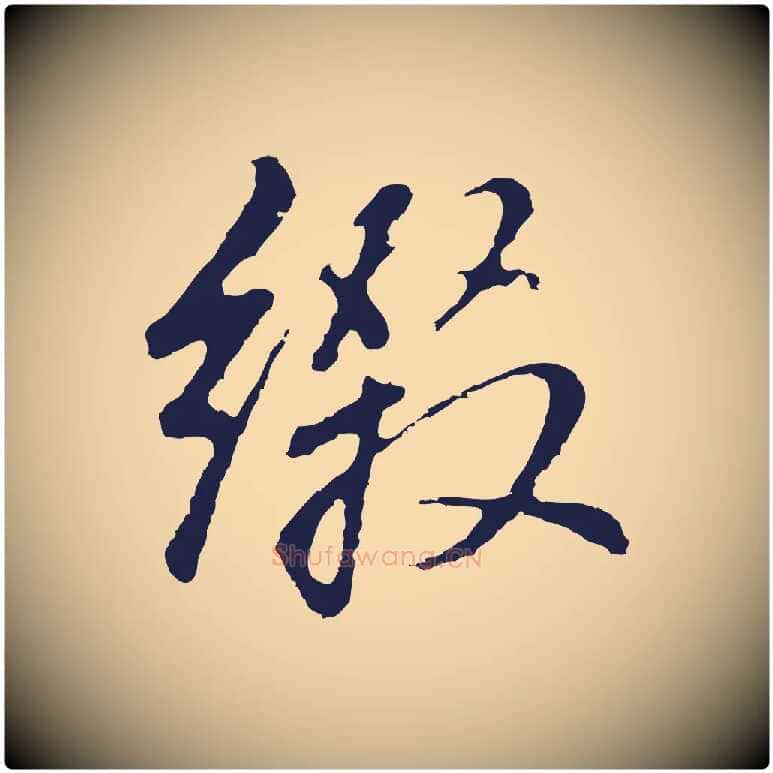 缀
Shufawang.CN